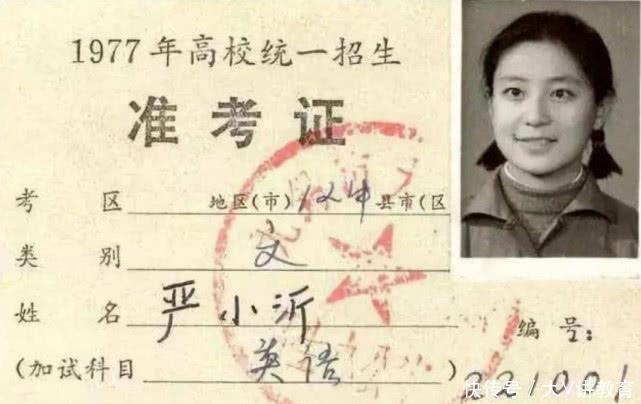 1977年高校统一招生
准考证
考 区 地区(市) 12中 县市(区
类 别 文
姓 名 严小沂
编号:
(加试科目 英语 )
快传号/大V讲教育